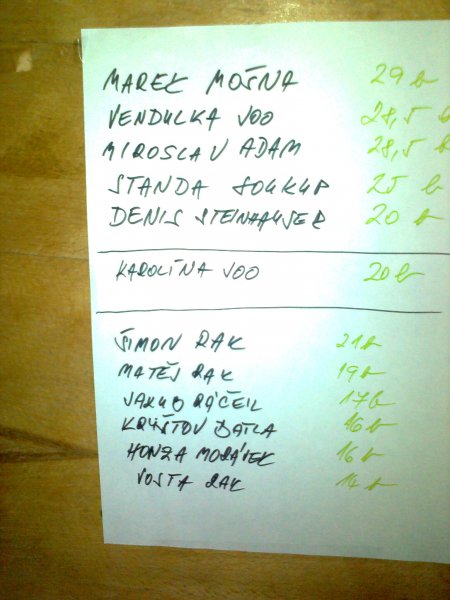 MAREK MOŠNA 29 b
VENDULKA VOO 28,5 b
MIROSLAV ADAM 28,5 b
STANDA SOUKUP 25 b
DENIS STEINHAUSER 20 b
KAROLÍNA VOO 20 b
ŠIMON RAK 21 b
MATĚJ RAK 19 b
JAKUB 17 b
KRYŠTOV BATLA 16 b
HONZA MORÁVEK 16 b
VOJTA RAK 14 b